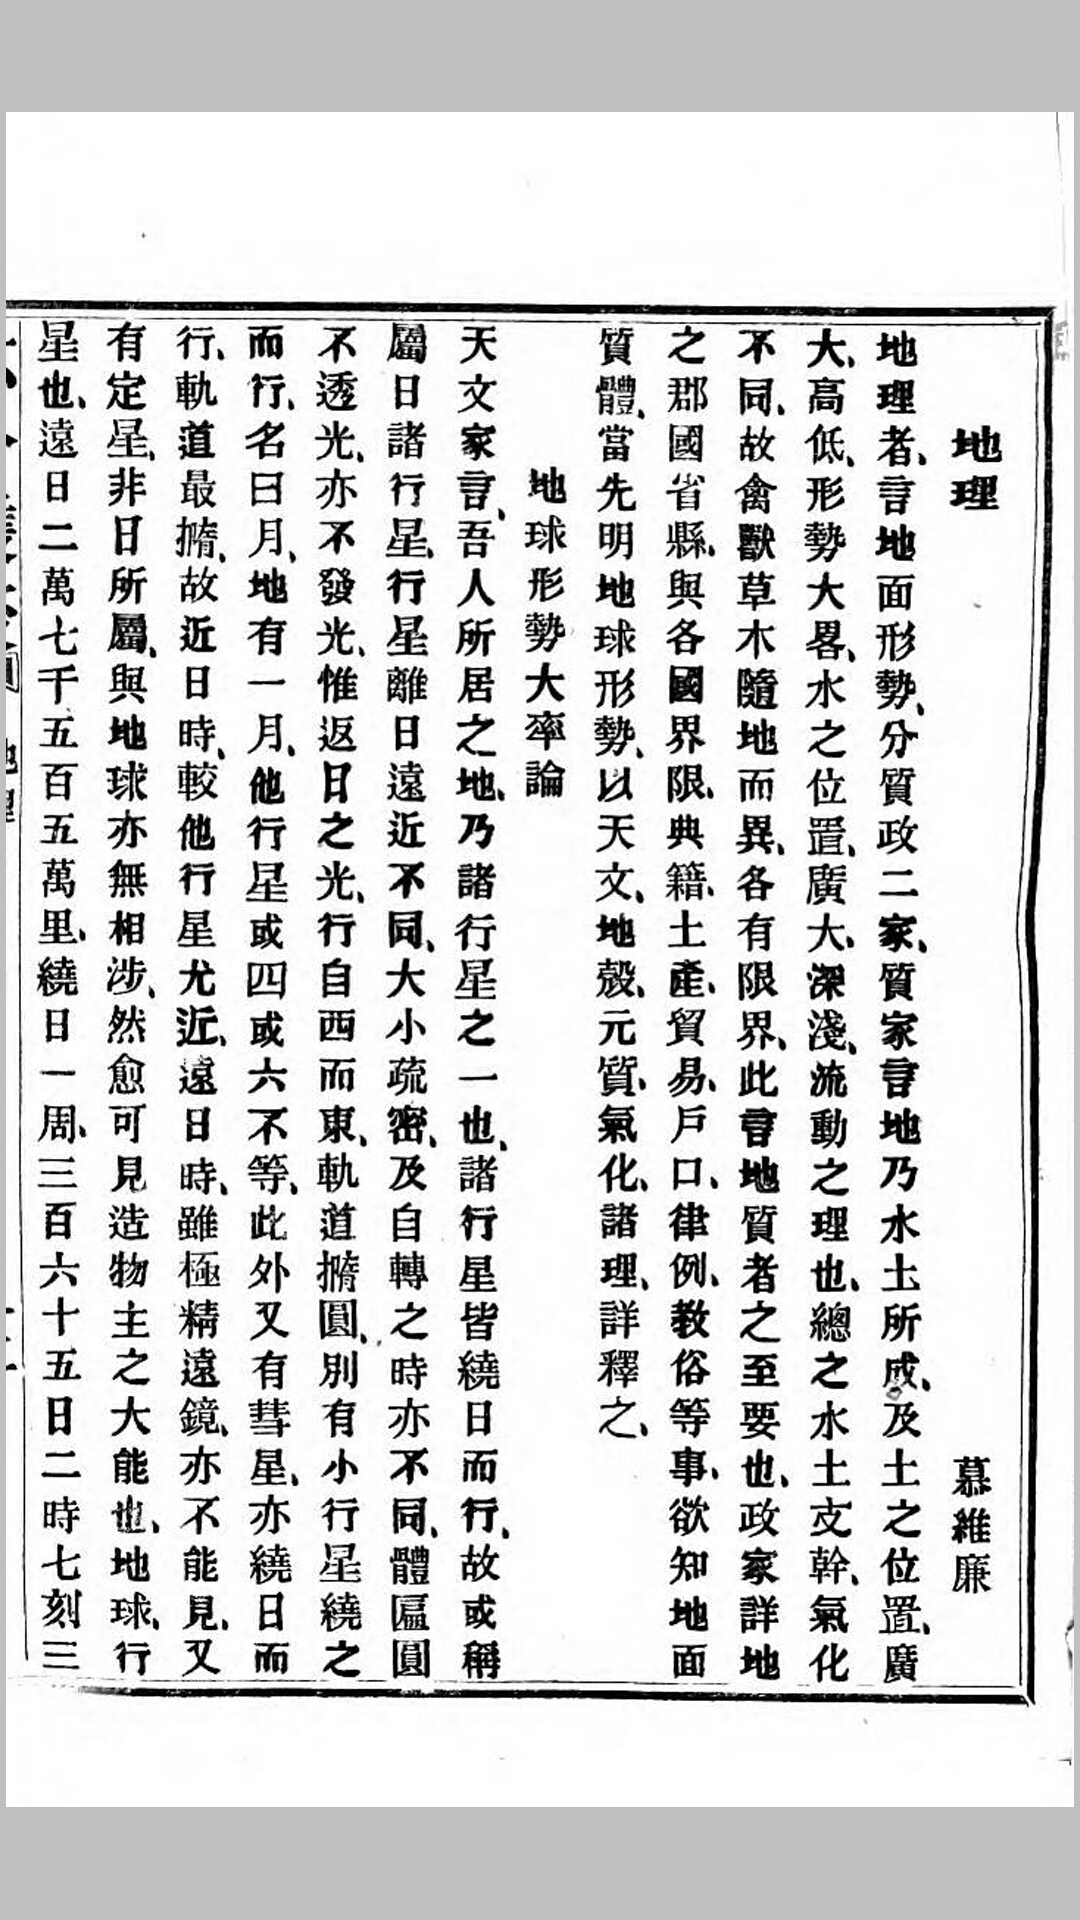 地理　慕維廉
地理者、言地面形勢、分質政二家、質家言地乃水土所成、及土之位置、廣
大、高低、形勢大畧、水之位置、廣大、深淺、流動之理也、總之水土支幹、氣化
不同、故禽獸草木隨地而異、各有限界、此言地質者之至要也、政家詳地
之郡國省縣、與各國界限、典籍、土產、貿易、戶口、律例、教俗等事、欲知地面
質體、當先明地球形勢、以天文、地殼、元質、氣化、諸理、詳釋之、
地球形勢大率論
天文家言、吾人所居之地、乃諸行星之一也、諸行星皆繞日而行、故或稱
屬日諸行星、行星離日遠近不同、大小疏密、及自轉之時亦不同、體匾圓
不透光、亦不發光、惟返日之光、行自西而東、軌道撱圓、別有小行星繞之
而行、名曰月、地有一月、他行星或四或六不等、此外又有彗星、亦繞日而
行、軌道最撱、故近日時、較他行星尤近、遠日時、雖極精遠鏡、亦不能見、又
有定星、非日所屬、與地球亦無相涉、然愈可見造物主之大能也、地球、行
星也、遠日二萬七千五百五萬里、繞日一周、三百六十五日二時七刻三
地理